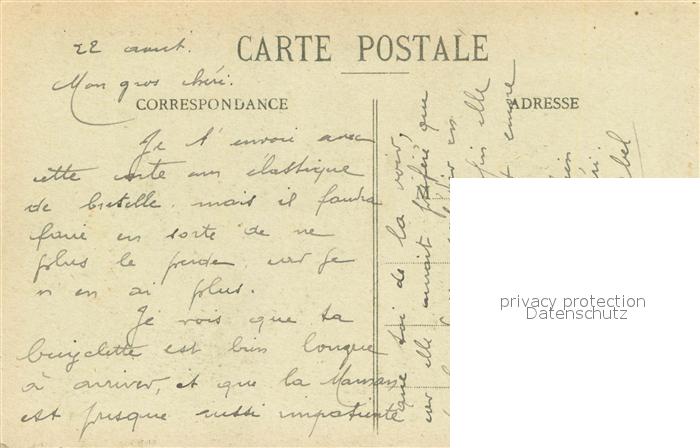 22 août.
CARTE POSTALE
Mon gros chéri.
CORRESPONDANCE
ADRESSE
Je t'envoie avec
cette carte un élastique
de bretelle. mais il faudra
faire en sorte de ne
plus le perdre. car je
n'en ai plus.
Je vois que ta
bicyclette est bien longue
à arriver, et que la Maman
est presque aussi impatiente
que toi de la voir,
car elle aurait préféré que
elle
encore
privacy protection
Datenschutz